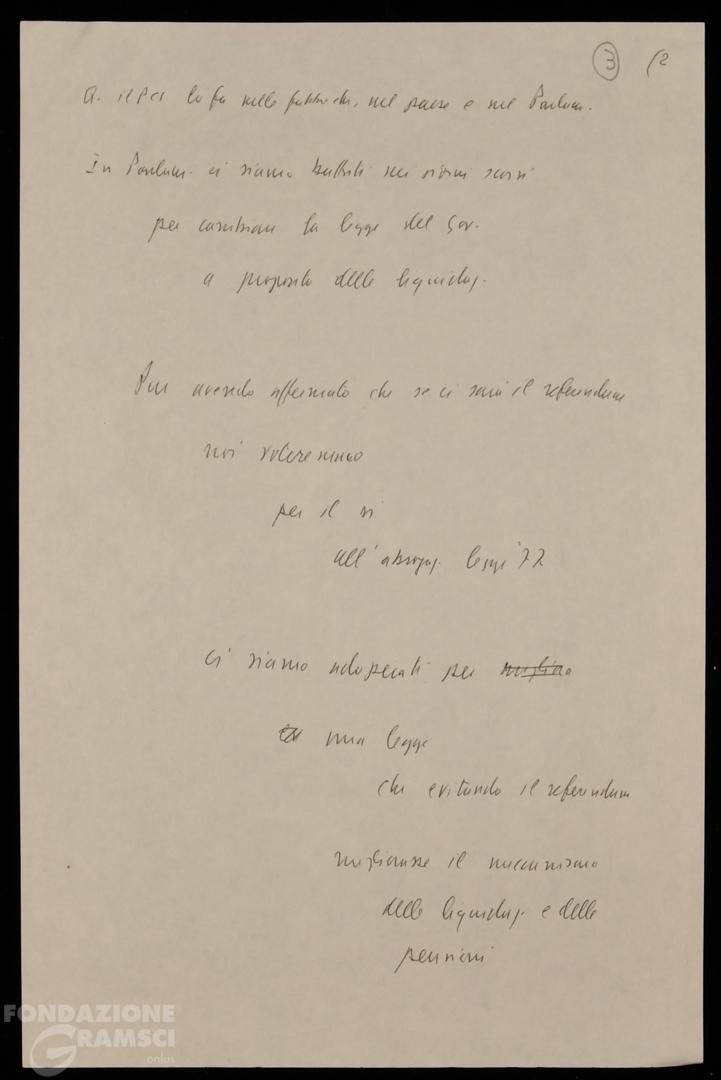 3 (2
Q. il PCI lo fa nelle fabbriche, nel paese e nel Parlam.
In Parlam. ci siamo battuti nei giorni scorsi
per cambiare la legge del Gov.
a proposito delle liquidaz.
Pur avendo affermato che se ci sarà il referendum
noi voteremmo
per il sì
all'abrogaz. legge '77
ci siamo adoperati per migliora
una legge
che evitando il referendum
migliorasse il meccanismo
delle liquidaz. e delle
pensioni
FONDAZIONE
GRAMSCI
onlus